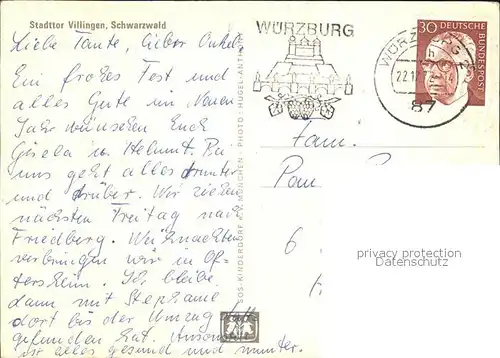 Stadttor Villingen, Schwarzwald
Liebe Tante, lieber Onkel,
Ein frohes Fest und
alles Gute im Neuen
Jahr wünschen Euch
Gisela u. Helmut. Bei
uns geht alles drunter
und drüber. Wir ziehen
nächsten Freitag nach
Friedberg. Weihnachten
verbringen wir in Of-
tersheim. Ich bleibe
dann mit Stephanie
dort bis der Umzug
gefunden hat. Ansonsten
wir alles gesund und munter.
SOS-KINDERDORF e.V. MÜNCHEN · PHOTO: HUGEL-ANTHER
WÜRZBURG
WÜRZBURG 2
22.12.7
87
30 DEUTSCHE BUNDESPOST
Fam.
Pau
6
privacy protection
Datenschutz